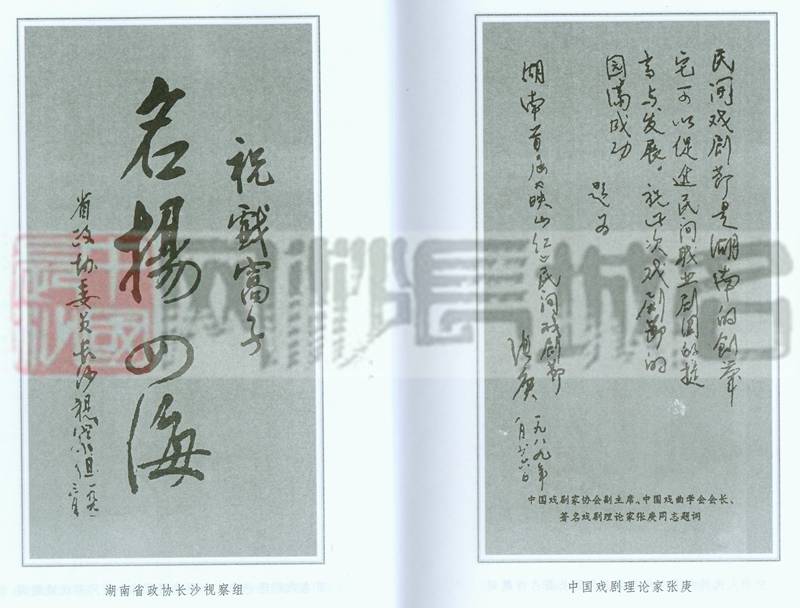 祝戲窩子
名揚四海
省政协委员长沙视察组
湖南省政协长沙视察组
民间戏剧节是湖南的创举
它可以促进民间职业剧团的提
高与发展。祝此次戏剧节的
园满成功
题为
湖南首届《映山红》民间戏剧节
张庚
一九八九年
中国戏剧家协会副主席、中国戏曲学会会长、
著名戏剧理论家张庚同志题词
中国戏剧理论家张庚